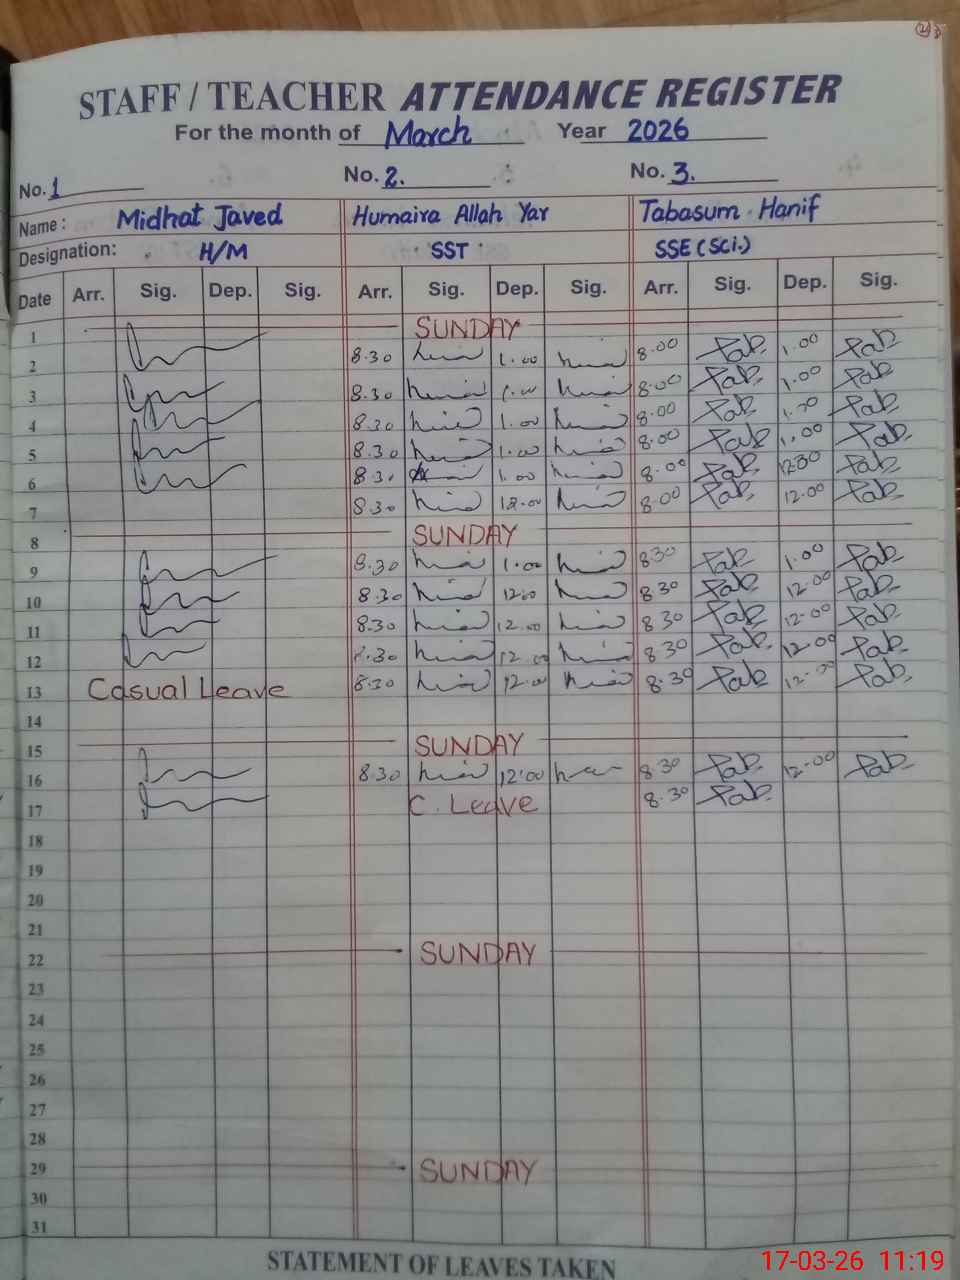 STAFF / TEACHER ATTENDANCE REGISTER
For the month of March Year 2026
No. 1 No. 2. No. 3.
Name: Midhat Javed Humaira Allah Yar Tabasum Hanif
Designation: H/M SST SSE (Sci.)
Date Arr. Sig. Dep. Sig. Arr. Sig. Dep. Sig. Arr. Sig. Dep. Sig.
1 SUNDAY
2 8.30 1.00 8.00 Tab. 1.00 Tab.
3 8.30 1.00 8.00 Tab. 1.00 Tab.
4 8.30 1.00 8.00 Tab. Tab.
5 8.30 1.00 8.00 Tab. 1.00 Tab.
6 8.30 1.00 8.00 Tab. 12.30 Tab.
7 8.30 12.00 8.00 Tab. 12.00 Tab.
8 SUNDAY
9 8.30 1.00 8.30 Tab. 1.00 Tab.
10 8.30 12.00 8.30 Tab. 12.00 Tab.
11 8.30 12.00 8.30 Tab. 12.00 Tab.
12 8.30 12.00 8.30 Tab. 12.00 Tab.
13 Casual Leave 8.30 12.00 8.30 Tab. 12.00 Tab.
14
15 SUNDAY
16 8.30 12.00 8.30 Tab. 12.00 Tab.
17 C. Leave 8.30 Tab.
18
19
20
21
22 SUNDAY
23
24
25
26
27
28
29 SUNDAY
30
31
STATEMENT OF LEAVES TAKEN
17-03-26 11:19